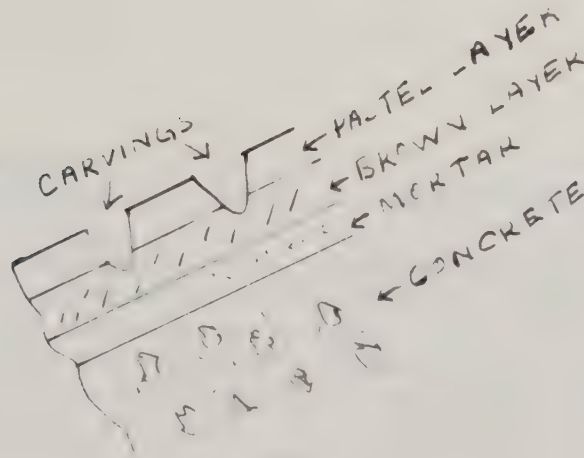 CARVINGS
PASTEL LAYER
BROWN LAYER
MORTAR
CONCRETE